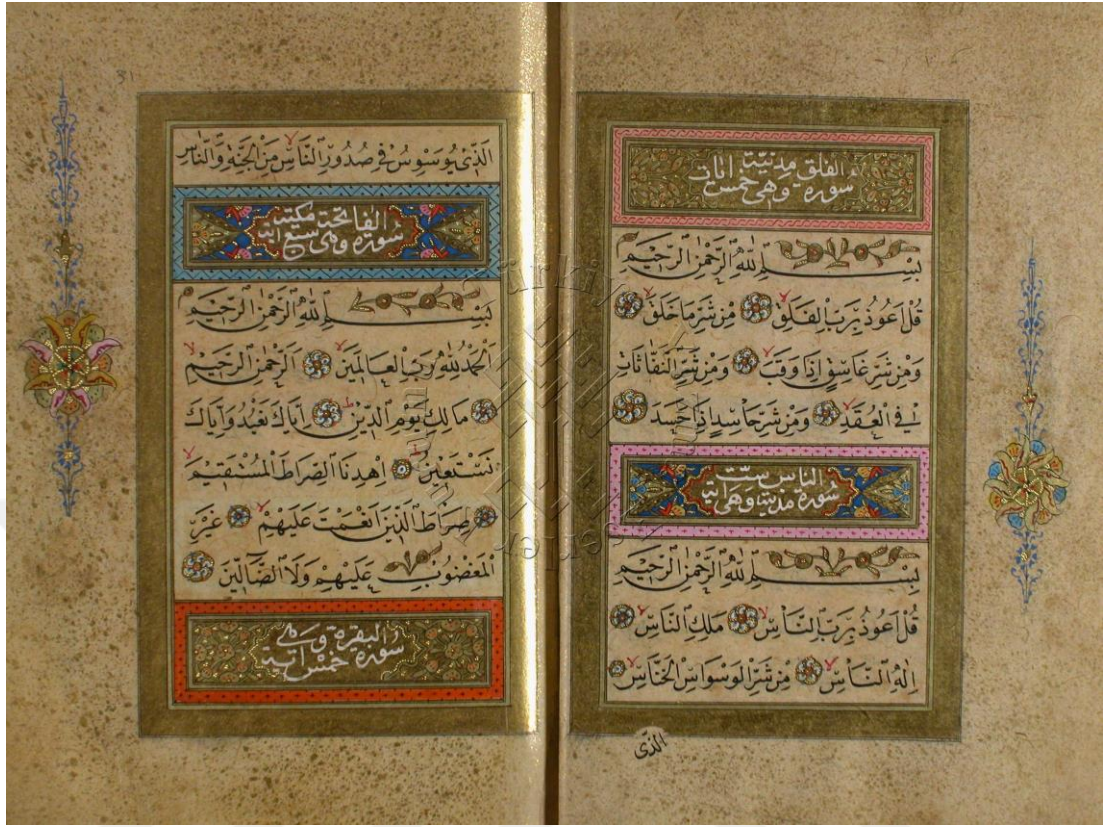 سورة الفلق مدنية
وهى خمس ايات
بِسْمِ ٱللّٰهِ ٱلرَّحْمٰنِ ٱلرَّحِيمِ
قُلْ اَعُوذُ بِرَبِّ الْفَلَقِ مِنْ شَرِّ مَا خَلَقَ
وَمِنْ شَرِّ غَاسِقٍ اِذَا وَقَبَ وَمِنْ شَرِّ النَّفَّاثَاتِ
فِى الْعُقَدِ وَمِنْ شَرِّ حَاسِدٍ اِذَا حَسَدَ
سورة الناس ست
مدنية وهى اية
بِسْمِ ٱللّٰهِ ٱلرَّحْمٰنِ ٱلرَّحِيمِ
قُلْ اَعُوذُ بِرَبِّ النَّاسِ مَلِكِ النَّاسِ
اِلٰهِ النَّاسِ مِنْ شَرِّ الْوَسْوَاسِ الْخَنَّاسِ
الذى
31
اَلَّذِى يُوَسْوِسُ فِى صُدُورِ النَّاسِ مِنَ الْجِنَّةِ وَالنَّاسِ
سورة الفاتحة مكية
وهى سبع اية
بِسْمِ ٱللّٰهِ ٱلرَّحْمٰنِ ٱلرَّحِيمِ
اَلْحَمْدُ لِلّٰهِ رَبِّ الْعَالَمِينَ اَلرَّحْمٰنِ الرَّحِيمِ
مَالِكِ يَوْمِ الدِّينِ اِيَّاكَ نَعْبُدُ وَاِيَّاكَ
نَسْتَعِينُ اِهْدِنَا الصِّرَاطَ الْمُسْتَقِيمَ
صِرَاطَ الَّذِينَ اَنْعَمْتَ عَلَيْهِمْ غَيْرِ
الْمَغْضُوبِ عَلَيْهِمْ وَلَا الضَّالِّينَ
سورة البقرة وهى
خمس اية